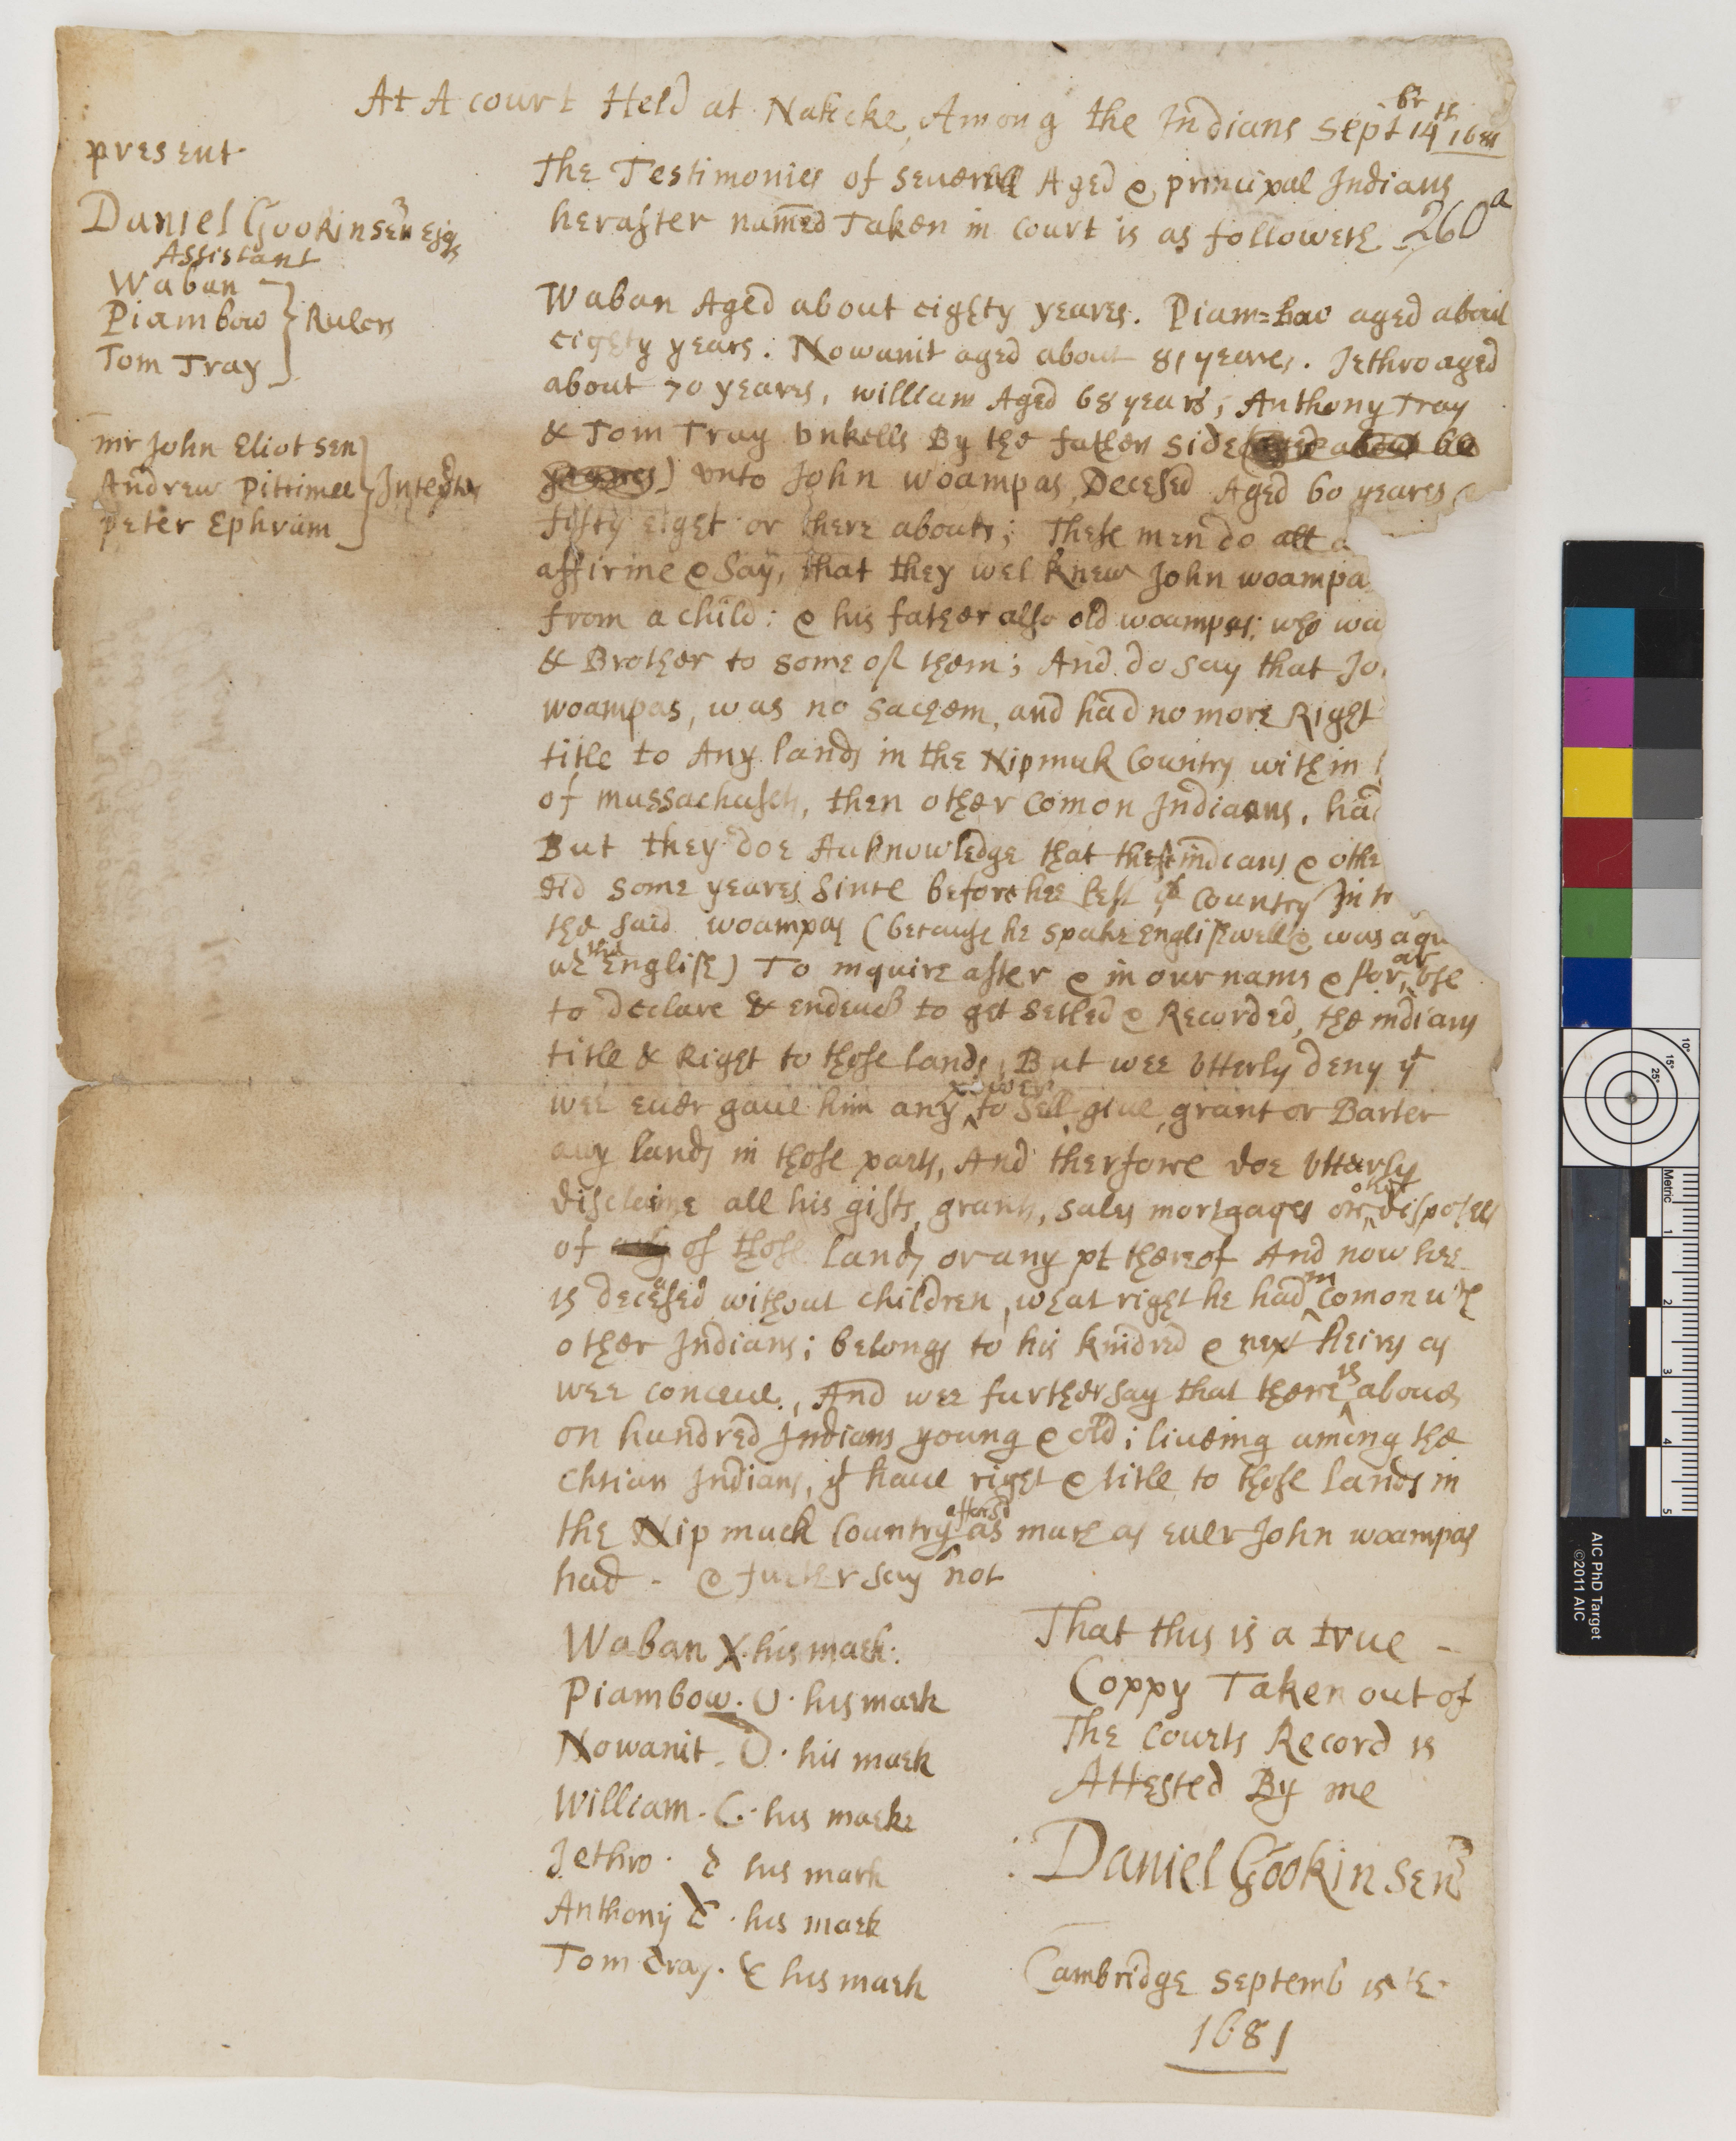 At A court Held at Naticke Among the Indians Septbr 14th 1681
present
Daniel Gookin Senr Esqr
Assistant
Waban
Piambow
Tom Tray
Rulers
mr John Eliot Sen
Andrew Pittimee
Peter Ephram
The Testimonies of severall Aged & principal Indians
herafter named Taken in Court is as followeth
260a
Waban Aged about eighty yeares. Piam=bow aged about
eighty years. Nowanit aged about 81 yeares. Jethro aged
about 70 yeares, william Aged 68 years, Anthony Tray
& Tom Tray vnkells By the father side
yeares) vnto John woampas Decesed Aged 60 yeares &
fifty eiget or there abouts; These men do all a
affirme & say, that they wel knew John woampa
from a child: & his father also old woampas; who wa
& Brother to some off them; And do say that Jo
woampas, was no sachem, and had no more Right
title to Any lands in the Nipmuk Country within t
of massachusets, then other Comon Indiaens, had
But they doe Acknowledge that these indians & othe
did some yeares since before hee left ye Country In tr
the said woampas (because he spake English well & was aqu
wth the English) To inquire after & in our name & for our vse
to declare & endeuor to get setled & Recorded, the indians
title & Right to those lands, But wee vtterly deny yt
wee euer gaue him any power to sell giue, grant or Barter
any lands in those parts, And therfore doe vtterly
disclaime all his gifts, grants, sales mortgages or other disposels
of of those lands or any pt thereof And now hee
is deceased without children, what right he had in Comon wth
other Indians; belongs to his kindred & next heirs as
wee conceue., And wee further say that there is aboue
on hundred Indians young & old; liueing among the
Chtian Indians, yt haue right & title to those lands in
the Nipmuck Country afforsd as much as euer John woampas
had - & further say not
Waban X his mark.
Piambow. O. his mark
Nowanit. O. his mark
William. C. his marke
Jethro. his mark
Anthony. his mark
Tom dray. his mark
That this is a true -
Coppy Taken out of
The Courts Record is
Attested By me
Daniel Gookin Senr
Cambridge Septemb 15 th
1681
AIC PhD Target
©2011 AIC
Metric
1
2
3
4
5
10°
15°
25°